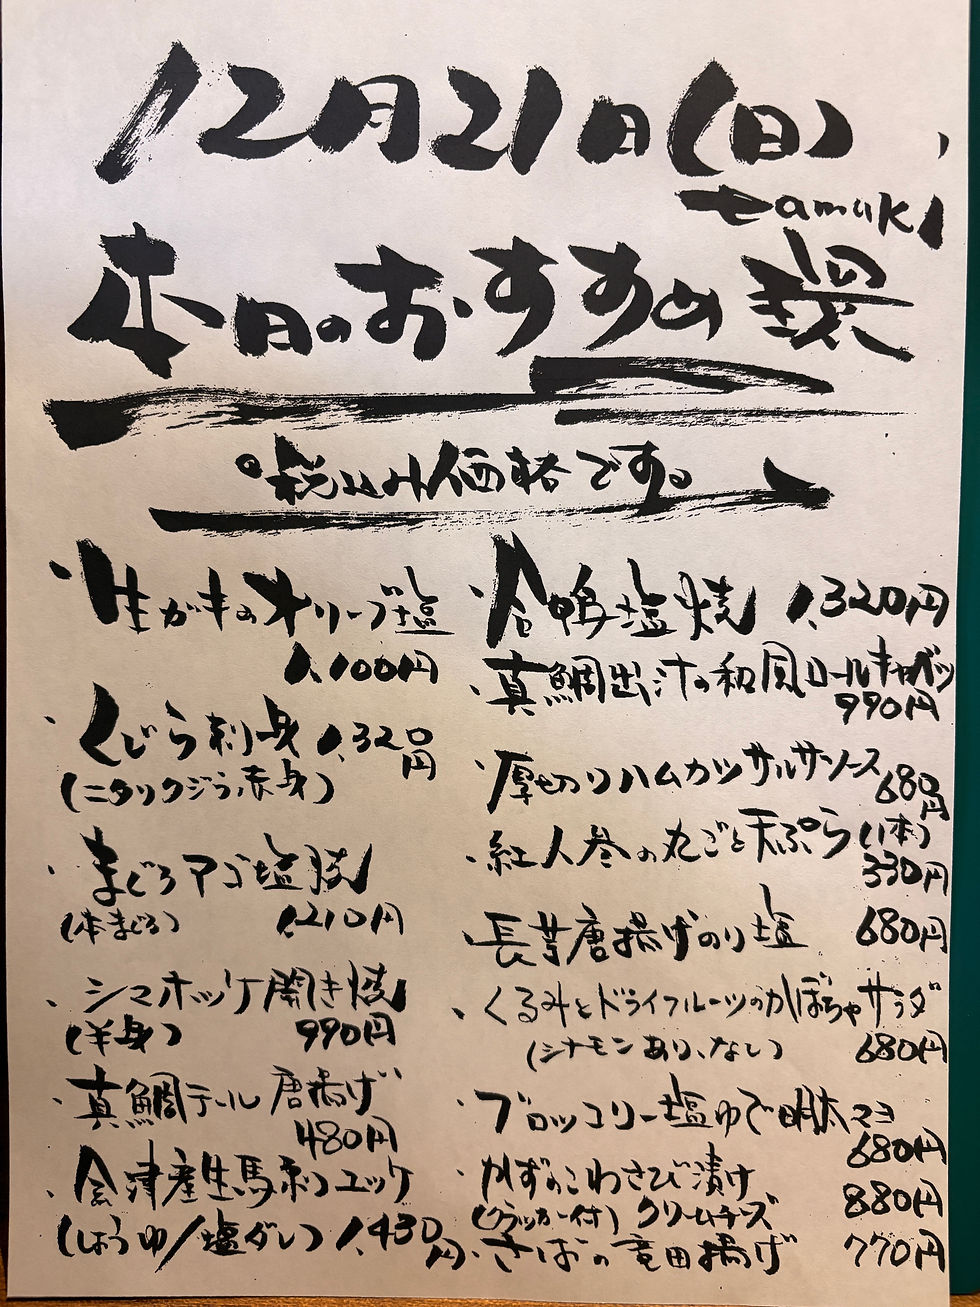 12月21日(日)
tamaki
本日のおすすめ 環
。税込み価格です。
・生ガキのオリーブ塩
1,100円
・くじら刺身 1,320円
(ニタリクジラ赤身)
・まぐろアゴ塩焼
(本まぐろ) 1,210円
・シマホッケ開き焼
(半身) 990円
・真鯛テール唐揚げ
480円
・会津産生馬刺ユッケ
(しょうゆ/塩ダレ) 1,430円
・合鴨塩焼 1,320円
・真鯛出汁の和風ロールキャベツ
990円
・厚切りハムカツサルサソース 680円
・紅人参の丸ごと天ぷら(1本)
330円
・長芋唐揚げのり塩 680円
・くるみとドライフルーツのかぼちゃサラダ
(シナモンあり、なし) 680円
・ブロッコリー塩ゆで明太マヨ
680円
・かずのこわさび漬け
(クラッカー付) クリームチーズ 880円
・さばの竜田揚げ 770円